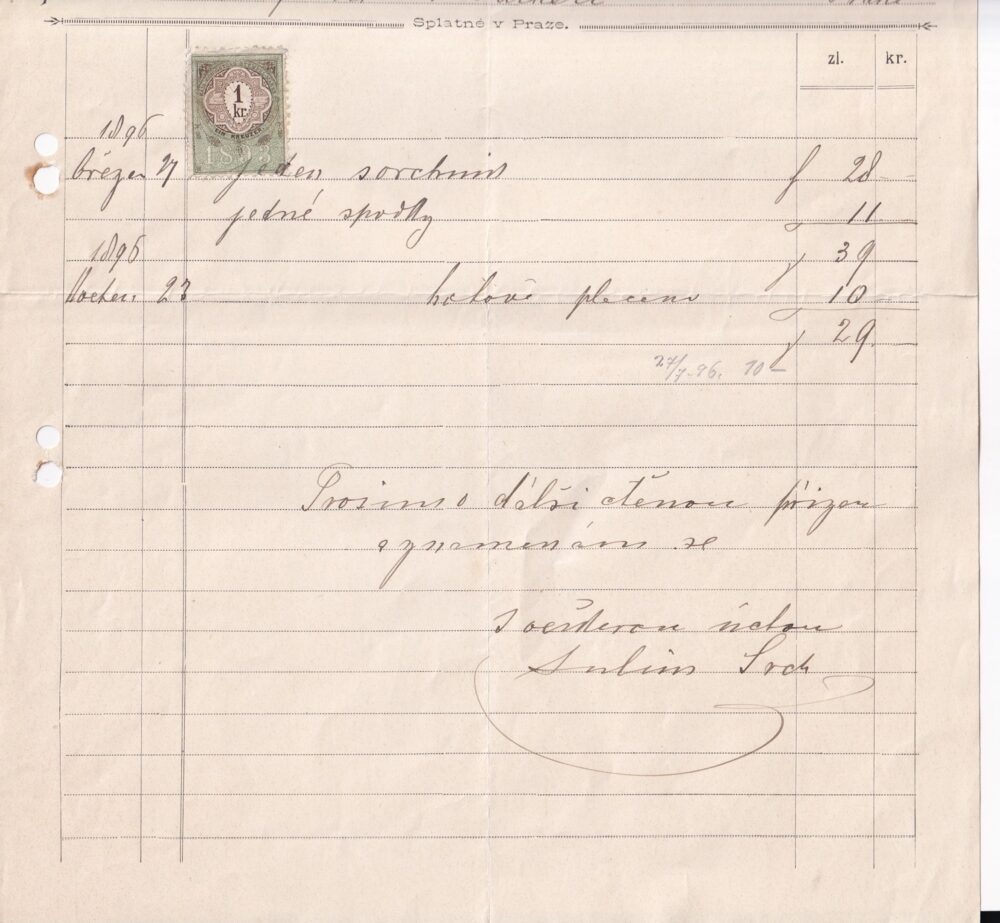 Splatné v Praze.
zl. kr.
1 kr.
EIN KREUZER
1893
1896
Březen 27 jeden svrchník f 28 -
jedné spodky 11 -
1896
f 39 -
23 hotově placeno 10 -
f 29 -
27/7 96. 10 -
Prosím o další ctěnou přízeň
a znamenám se
s veškerou úctou
Srch